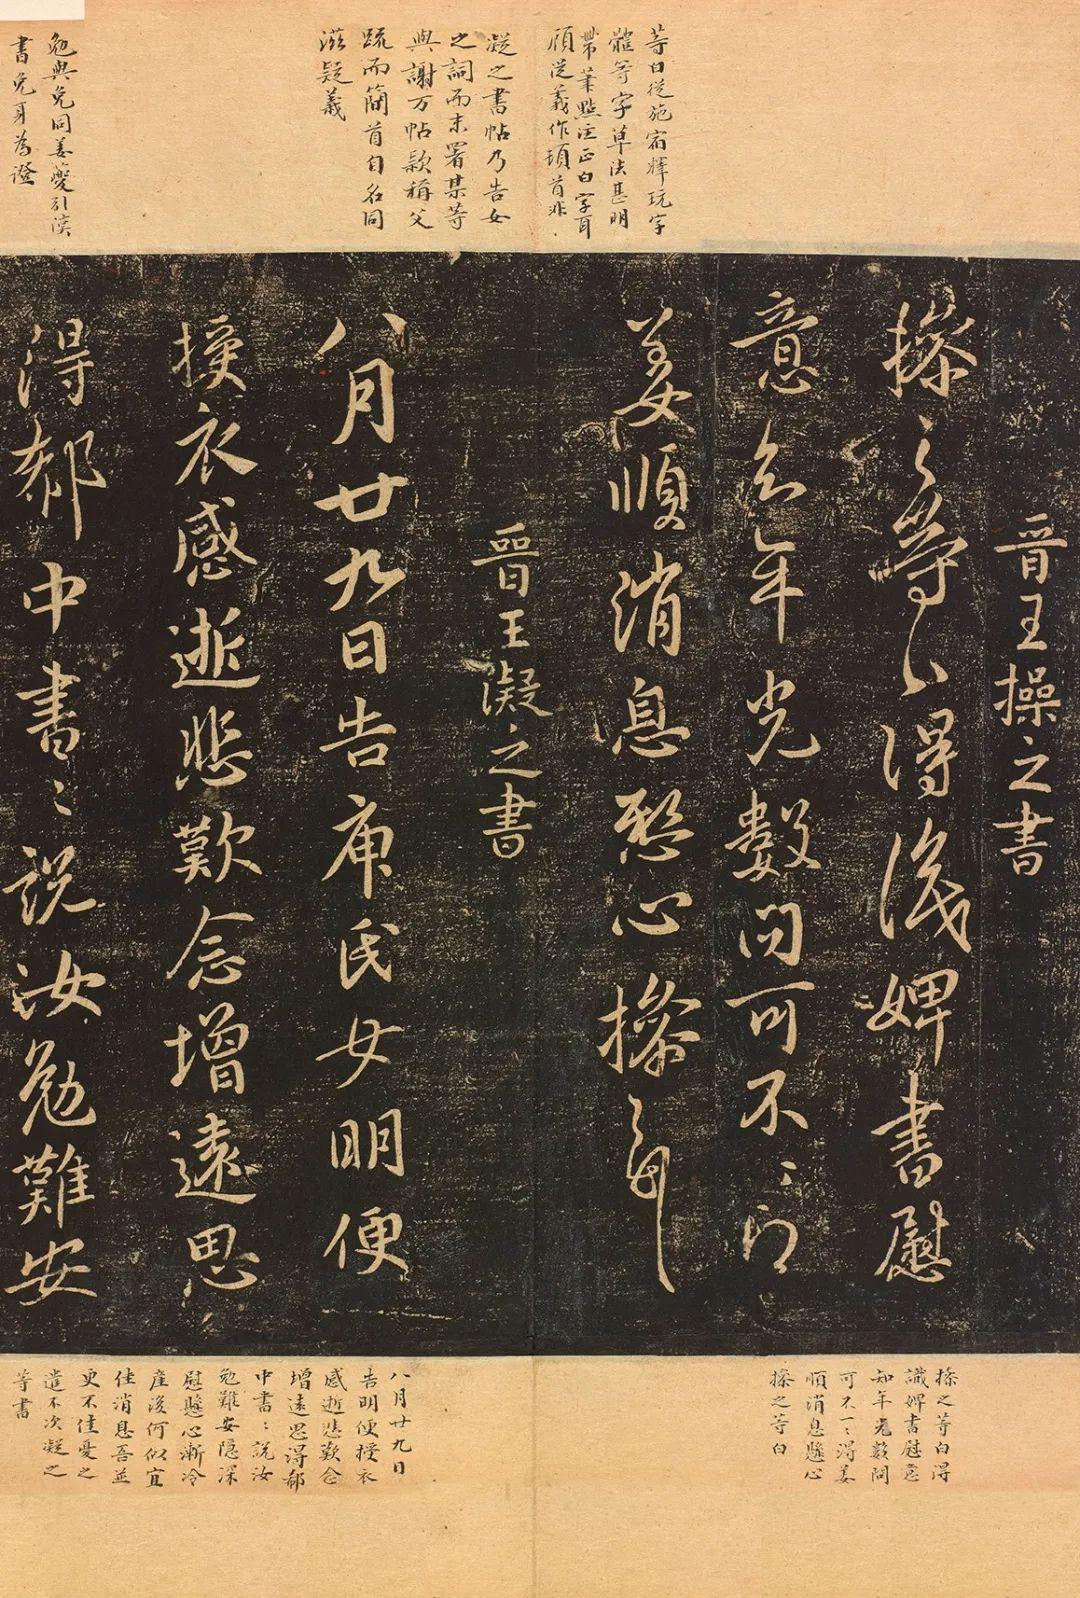 等曰從施宿釋玩字
體等字草法甚明
帶筆點注正白字耳
顧從義作頓首非
凝之書帖乃告女
之詞而末署某等
與謝万帖款稱父
疏而簡首自名同
滋疑義
勉與免同姜夔引漢
書免身為證
晉王操之書
操之等白得識婢書慰
意知年光數問可不一一得
姜順消息懸心操之等白
晉王凝之書
八月廿九日告庾氏女明便
授衣感逝悲歎念增遠思
得郗中書書說汝勉難安
操之等白得
識婢書慰意
知年光數問
可不一一得姜
順消息懸心
操之等白
八月廿九日
告明便授衣
感逝悲歎念
增遠思得郗
中書書說汝
勉難安隱深
慰懸心漸冷
產後何似宜
佳消息吾並
更不佳憂之
遣不次凝之
等書